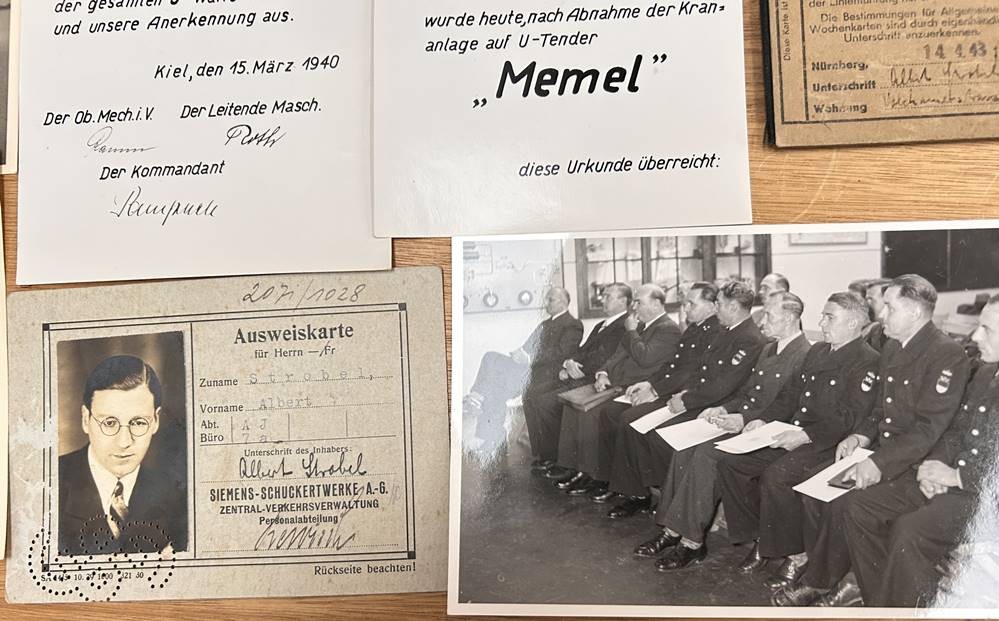 der gesamten
und unsere Anerkennung aus.
Kiel, den 15. März 1940
Der Ob. Mech. i. V.
Der Leitende Masch.
Roth
Der Kommandant
wurde heute, nach Abnahme der Kran=
anlage auf U-Tender
„Memel”
diese Urkunde überreicht:
Diese Karte ist
Die Bestimmungen für Allgemeine
Wochenkarten sind durch eigenhändige
Unterschrift anzuerkennen.
14.4.43
Nürnberg,
Unterschrift Albert Strobel
Wohnung
2071/1028
Ausweiskarte
für Herrn — Fr
Zuname Strobel,
Vorname Albert
Abt. AJ
Büro 7a
Unterschrift des Inhabers:
Albert Strobel
SIEMENS-SCHUCKERTWERKE A.-G.
ZENTRAL-VERKEHRSVERWALTUNG
Personalabteilung
10. 39 1000 321 30
Rückseite beachten!